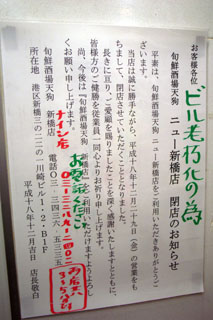 お客様各位
ビル老朽化の為
旬鮮酒場天狗 ニュー新橋店 閉店のお知らせ
平素は、旬鮮酒場天狗 ニュー新橋店をご利用いただきありがとうご
ざいます。
当店は誠に勝手ながら、平成十八年十二月二十九日(金)の営業をも
ちまして、閉店させていただくこととなりました。
長きに亘り、ご愛顧を賜りましたことを深く感謝いたしますとともに、
皆様方のご健勝を従業員一同心よりお祈り申し上げます。
尚、今後は『旬鮮酒場天狗 新橋店』をご利用いただけますようよろし
くお願い申し上げます。
旬鮮酒場天狗 新橋店 電話〇三-三四三六-
所在地 港区新橋三の
川崎ビル
B1F
平成十八年十二月吉日
店長敬白